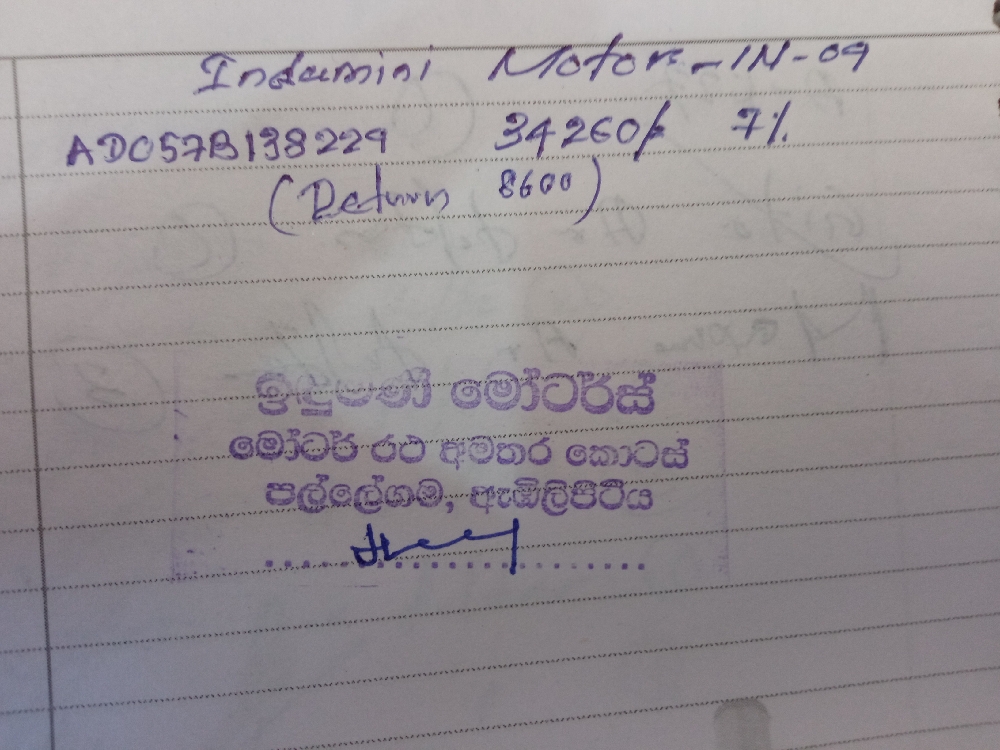 Indumini Motors - IN-09
AD057B138229 34260/= 7%
(Return 8600)
ඉඳුමිණි මෝටර්ස්
මෝටර් රථ අමතර කොටස්
පල්ලේගම, ඇඹිලිපිටිය